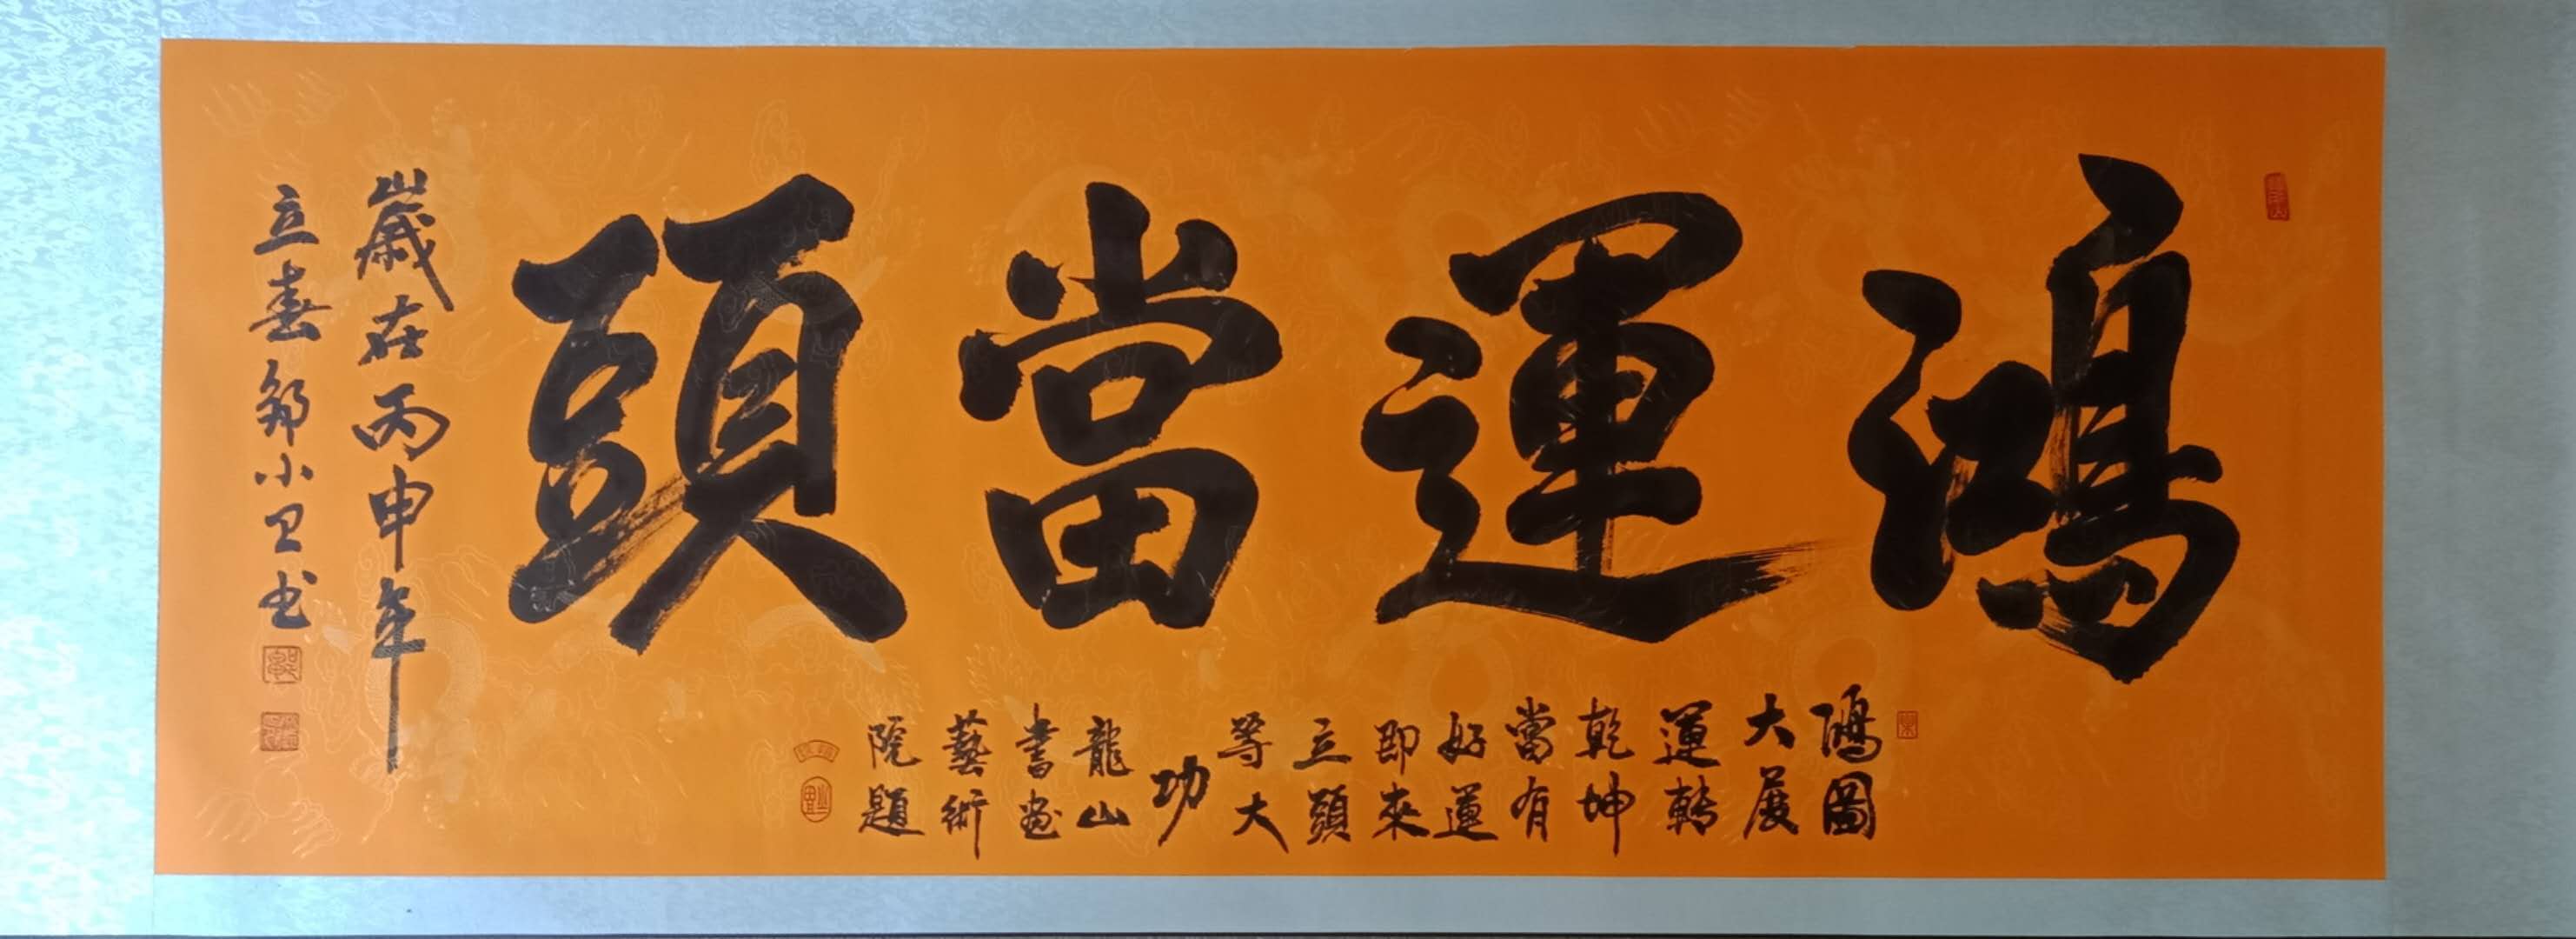 鴻運當頭
鴻圖
大展
運轉
乾坤
當有
好運
即來
立頭
等大
功
龍山
書画
藝術
院題
歲在丙申年
立春邹小卫书